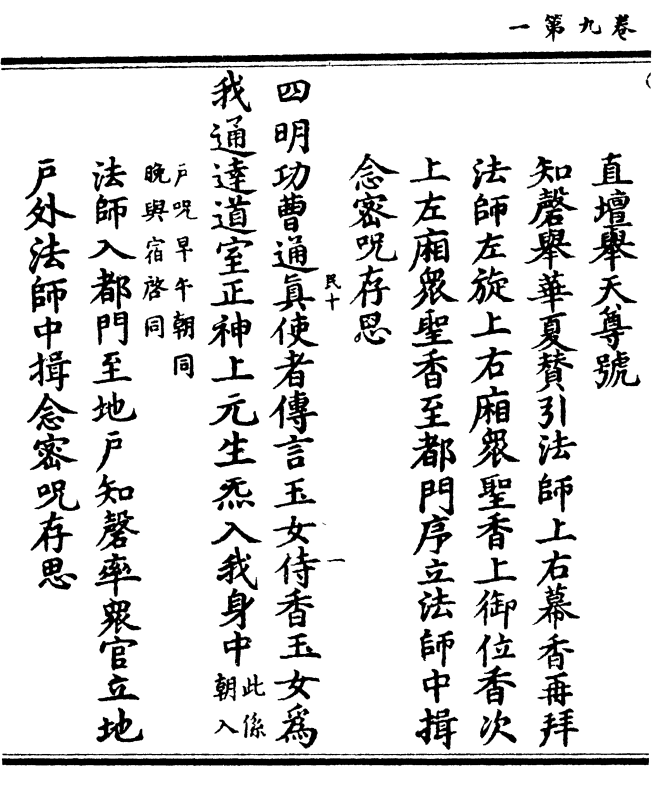 卷九第一
直壇舉天尊號
知磬舉華夏贊引法師上右幕香再拜
法師左旋上右廂衆聖香上御位香次
上左廂衆聖香至都門序立法師中揖
念密呪存思
民十
一
四明功曹通眞使者傳言玉女侍香玉女爲
我通達道室正神上元生炁入我身中此係朝入
戶呪早午朝同
晚與宿啓同
法師入都門至地戶知磬率衆官立地
戶外法師中揖念密呪存思